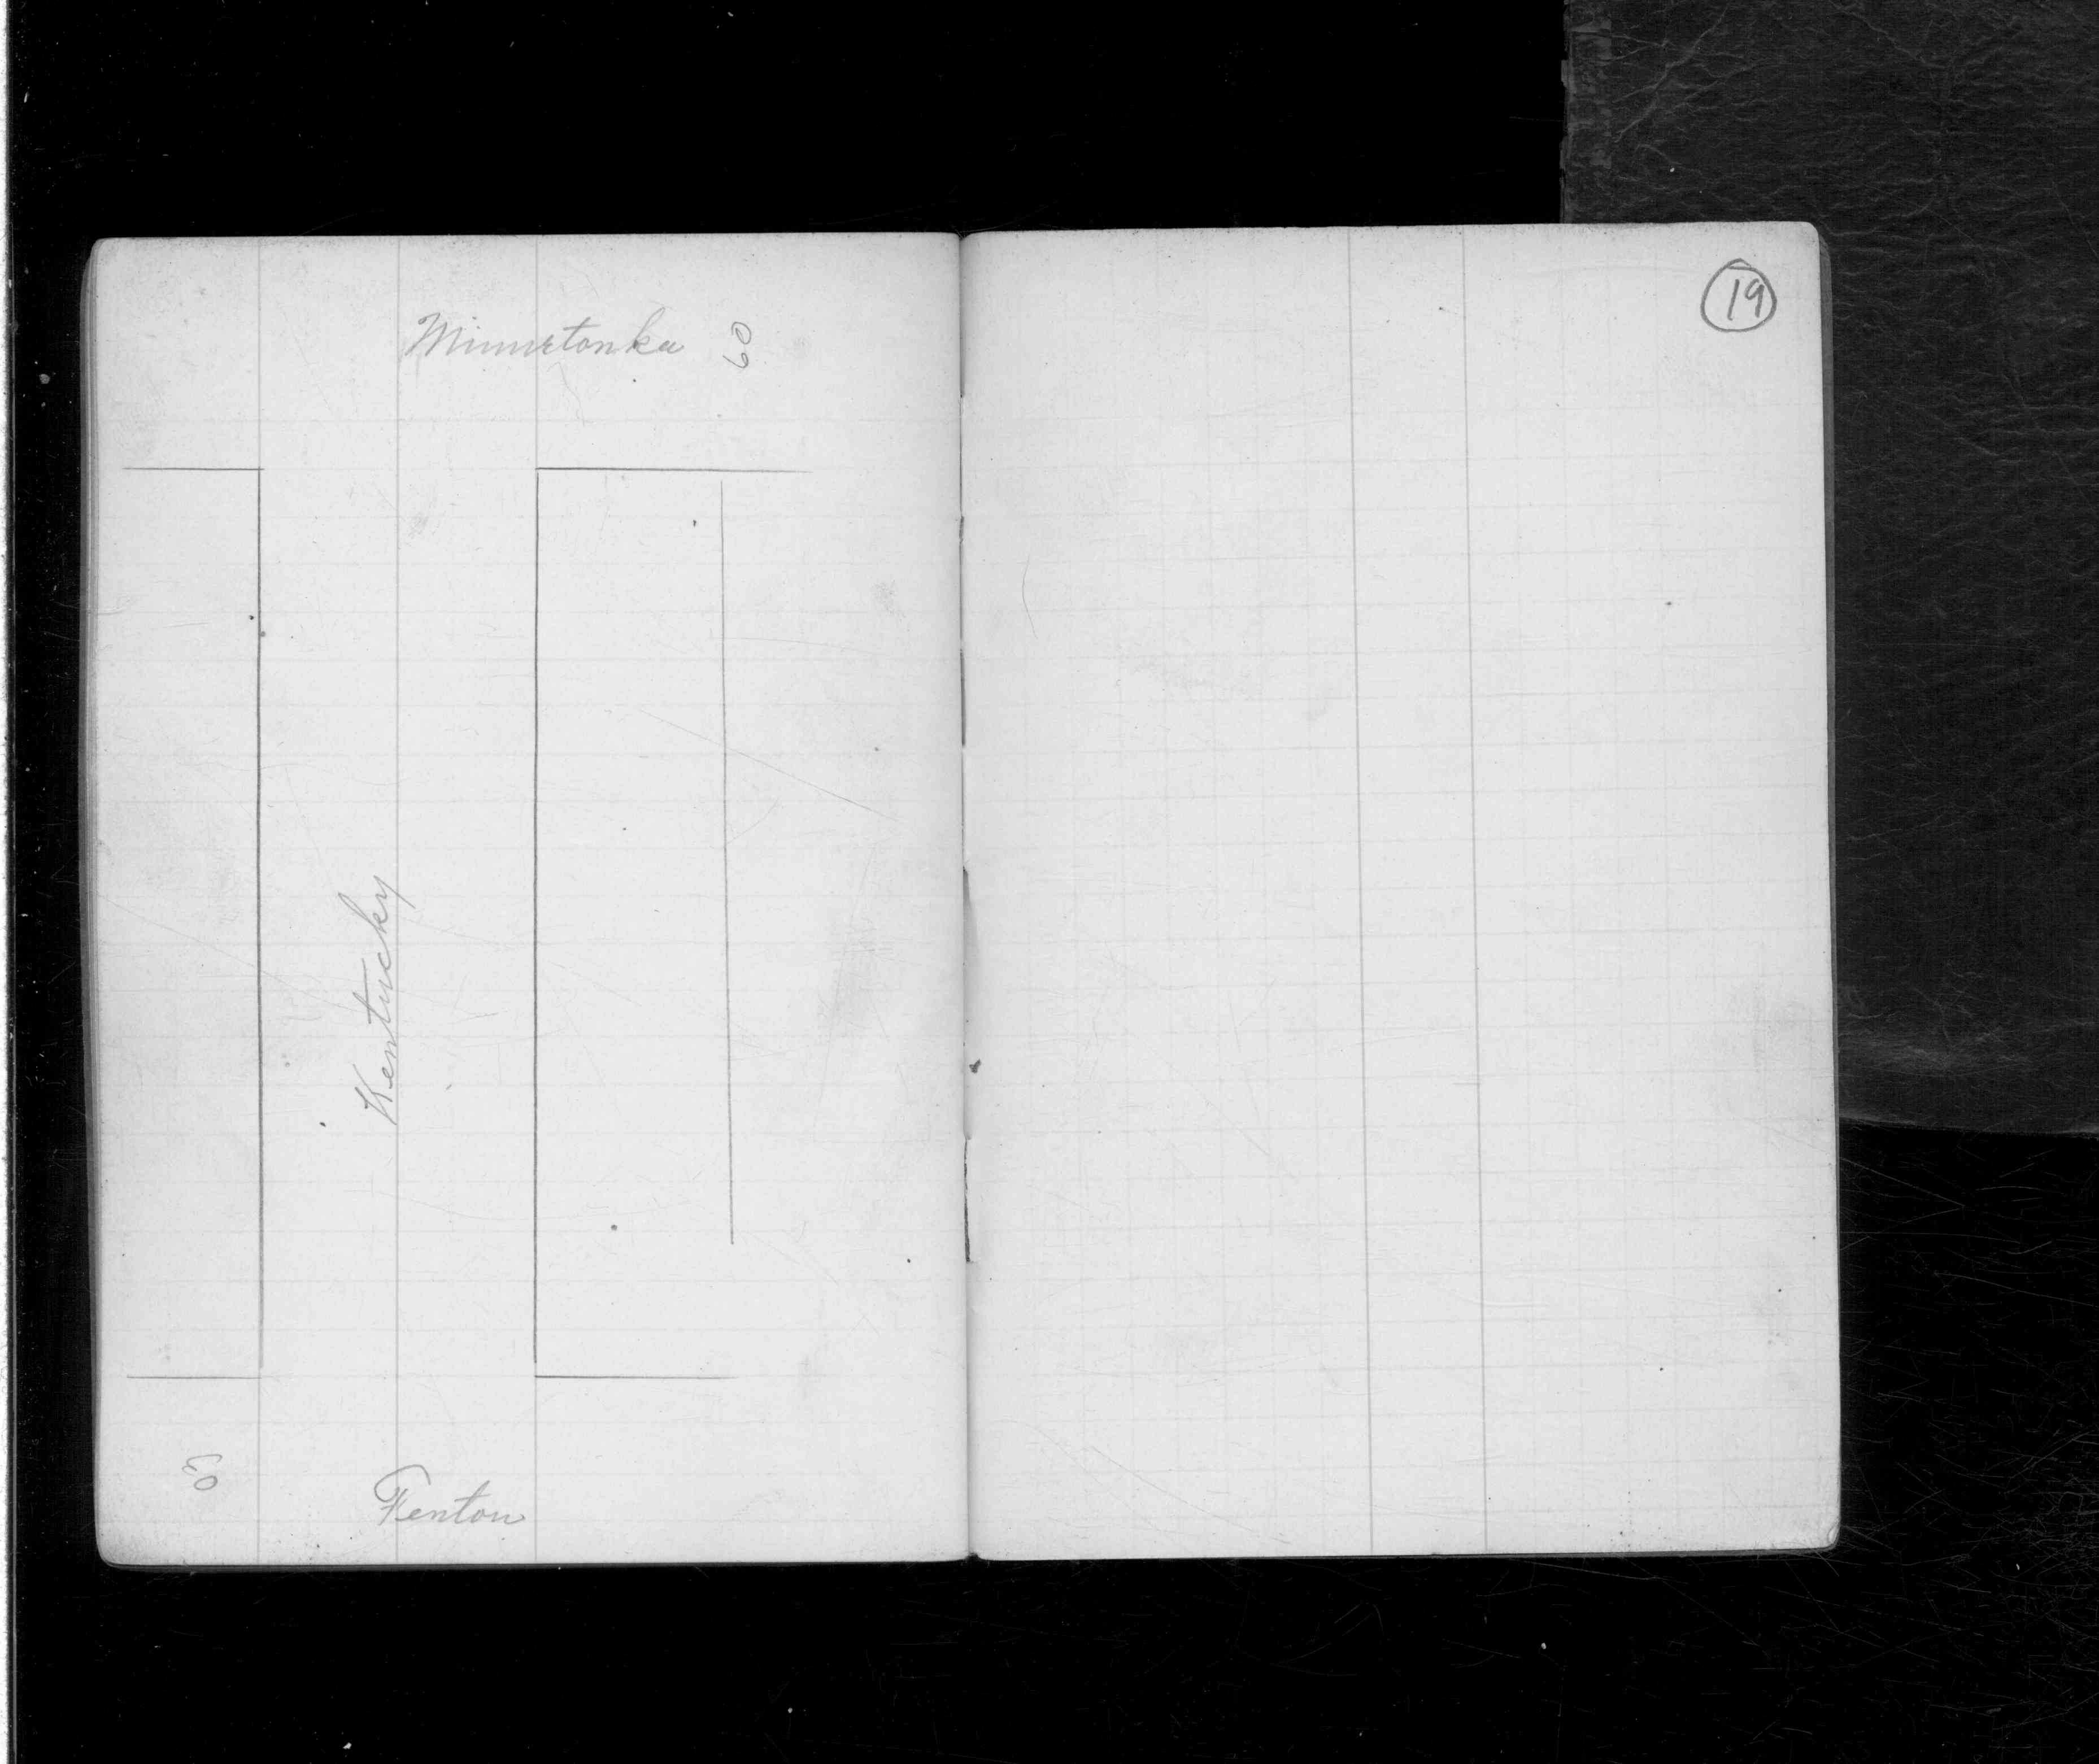 Minnetonka 60
Kentucky
Fenton
19